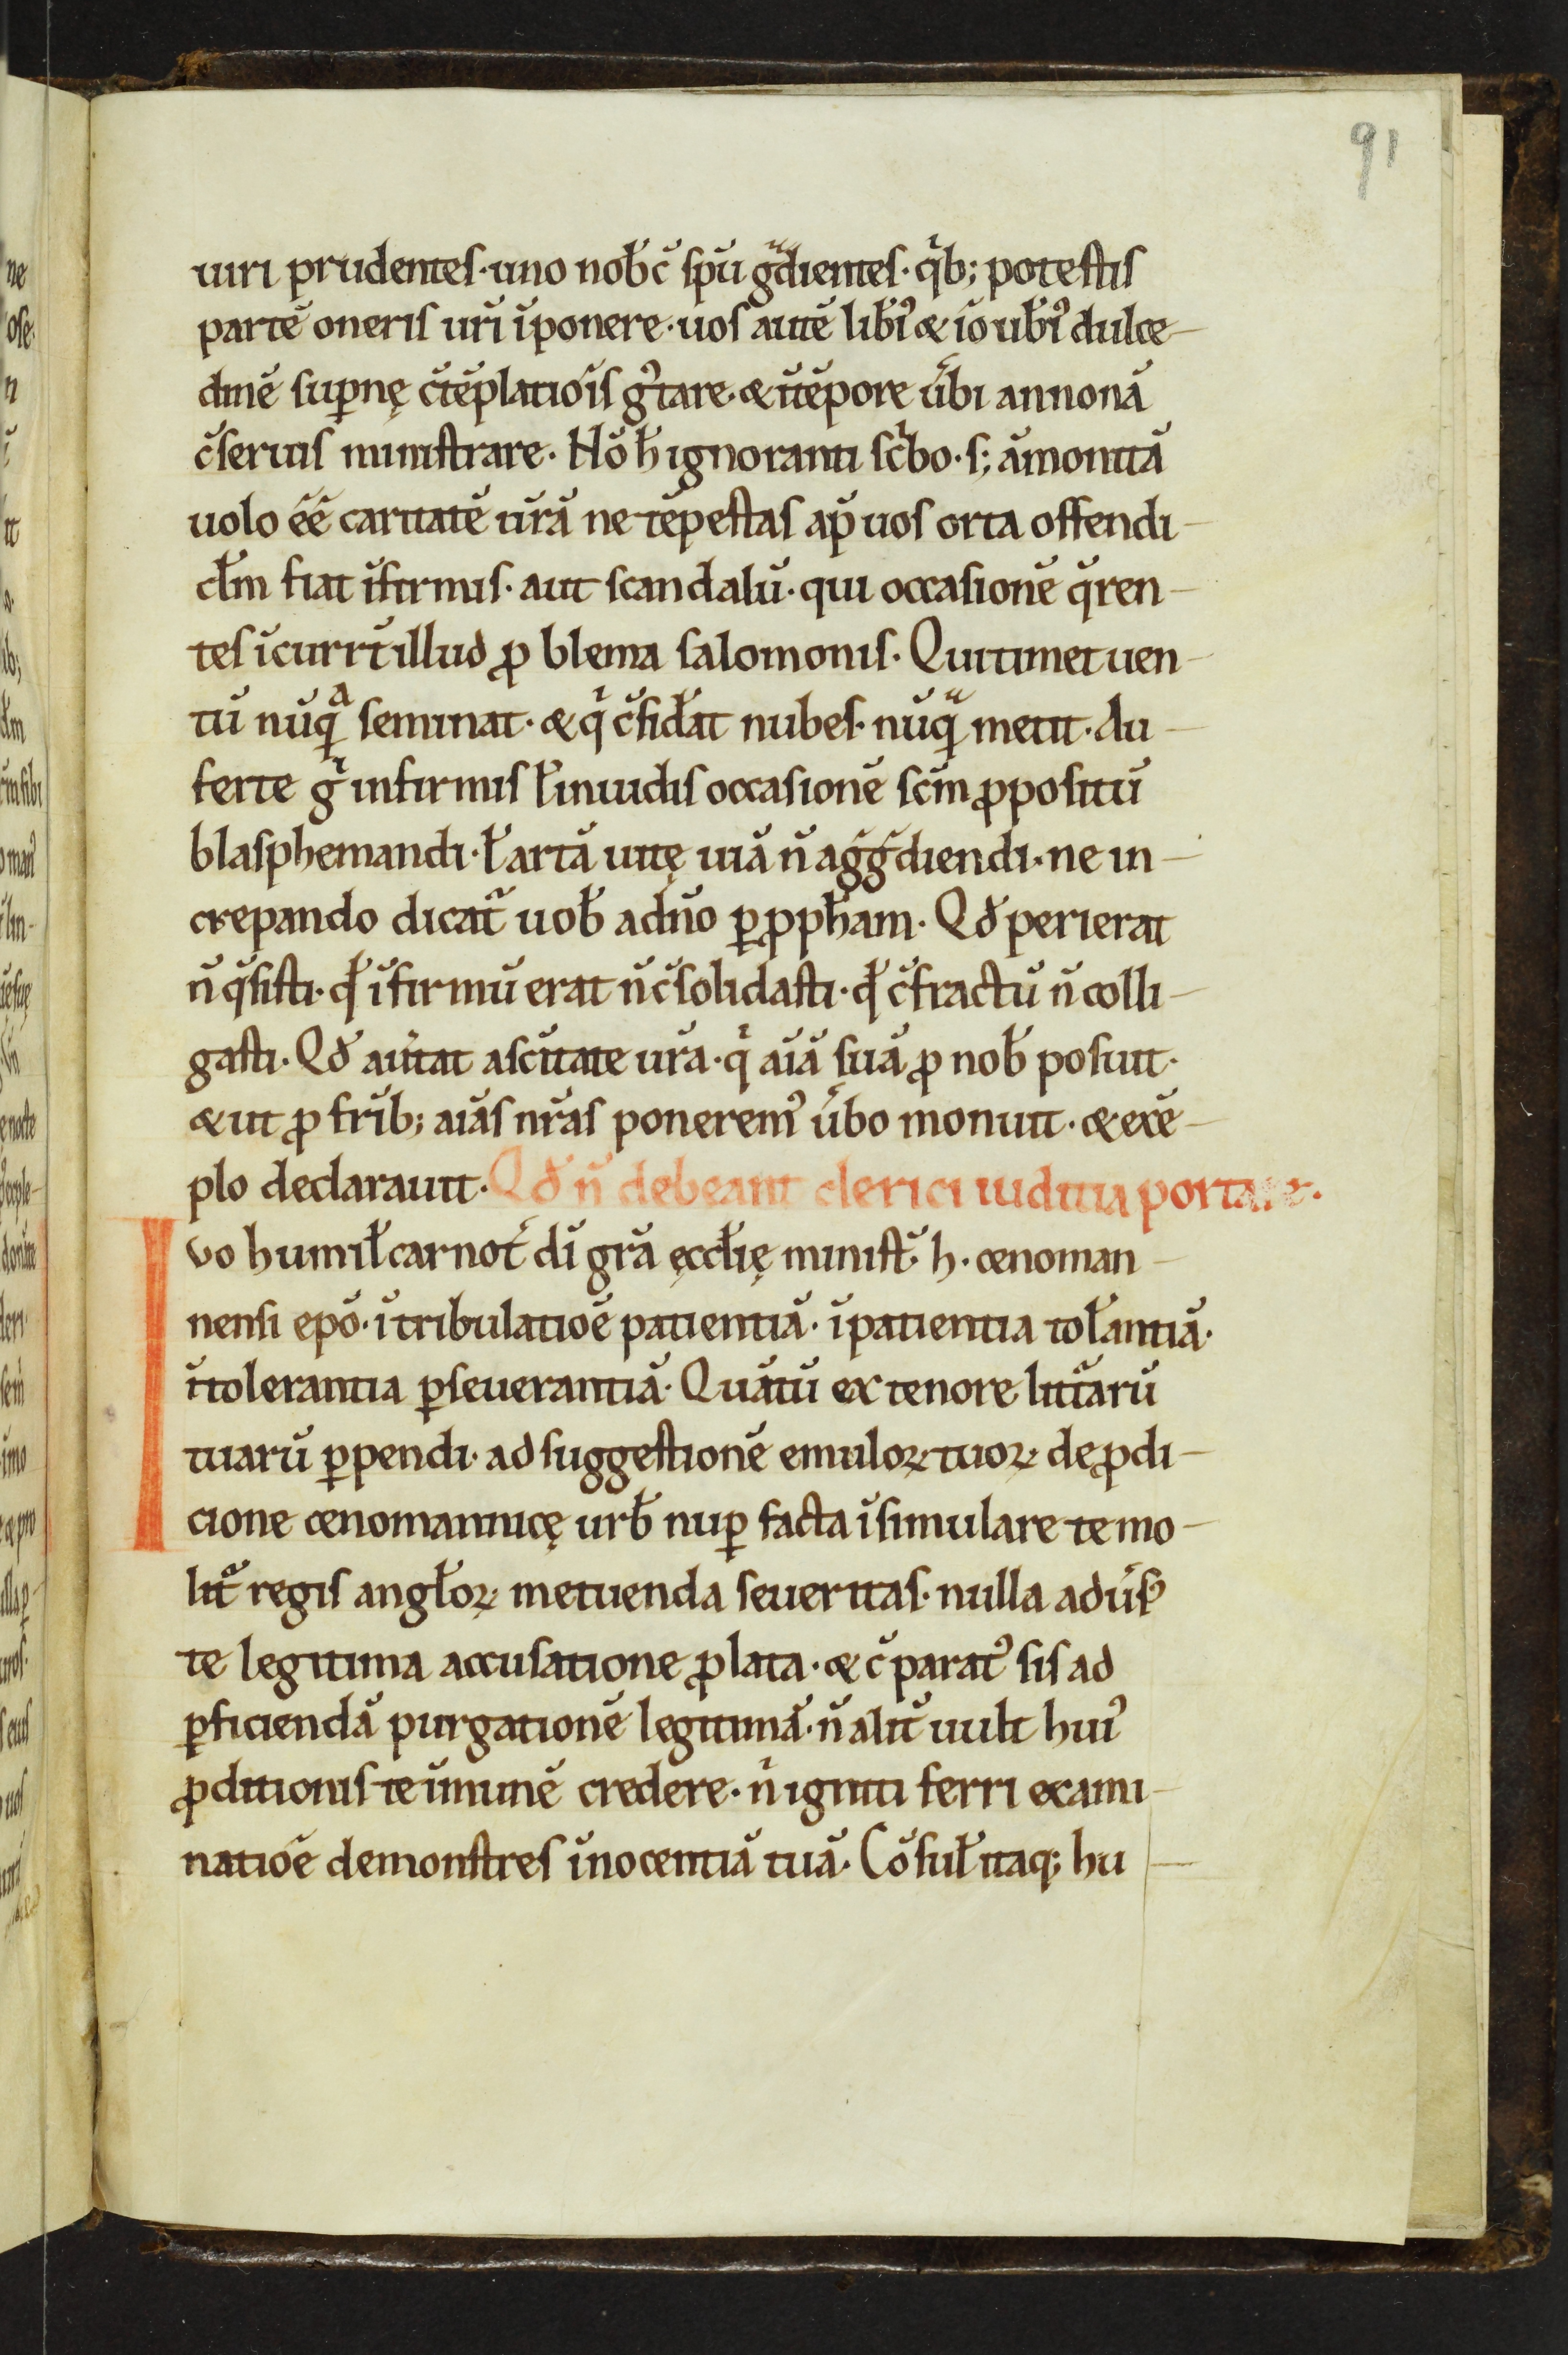 91
uiri prudentes· uno nob̄ c̄ sp̄u gͣdientes· qͥb; potestis
partē oneris ur̄i īponere· uos autē lib̄iꝰ & iō ub̄iꝰ dulce-
dinē sup̱nę c̄tēplatiōis gͥtare· & ī tēpore ūbi annonā
c̄seruis ministrare· Nō h̄ ignoranti scͥbo· s; āmonitā
uolo ēē caritatē ur̄ā ne tēpestas ap̄ uos orta offendi-
cl̄m fiat īfirmis· aut scandalū· qui occasionē q̄ren-
tes īcurrt̄ illud ꝓblema salomonis· Qui timet uen-
tū nūqͣ seminat· & qͥ c̄fid̄at nubes· nūqͣ metit· Au-
ferte gͥ infirmis ł inuidis occasionē sc̄m ꝓpositū
blasphemandi· ł artā uitę uiā n̄ aggͣdiendi· ne in-
crepando dicat᷑ uob̄ a dn̄o ꝑ ꝓph̄am· Qd̄ perierat
n̄ q̄sisti· qd̄ īfirmū erat n̄ c̄solidasti· qd̄ c̄fractū n̄ colli-
gasti· Qd̄ aūtat a sc̄itate ur̄a· qͥ aīā suā ꝓ nob̄ posuit·
& ut ꝓ fr̄ib; aīas nr̄as poneremꝰ ūbo monuit· & exē-
plo declarauit· Qd̄ n̄ debeant clerici iuditia portare.
Ivo humil̄ carnot̄ dī gr̄a ęccl̄ię minist᷑ h· cenoman-
nensi ep̄o· ī tribulatiōe patientiā· ī patientia tol̄antiā·
ī tolerantia ꝑseuerantiā· Quātū ex tenore litt᷑arū
tuarū ꝑpendi· ad suggestionē emuloꝝ tuoꝝ de ꝓdi-
cione cenomannicę urb̄ nup̱ facta īsimulare te mo-
lit᷑ regis angl̄oꝝ metuenda seueritas· nulla adūsꝰ
te legitima accusatione ꝓlata· & c̄ paratꝰ sis ad
ꝑficiendā purgationē legitimā· n̄ alit̄ uult huiꝰ
ꝓditionis te īmunē credere· nͥ igniti ferri exami-
natiōe demonstres īnocentiā tuā· Cōsul̄ itaq; hu